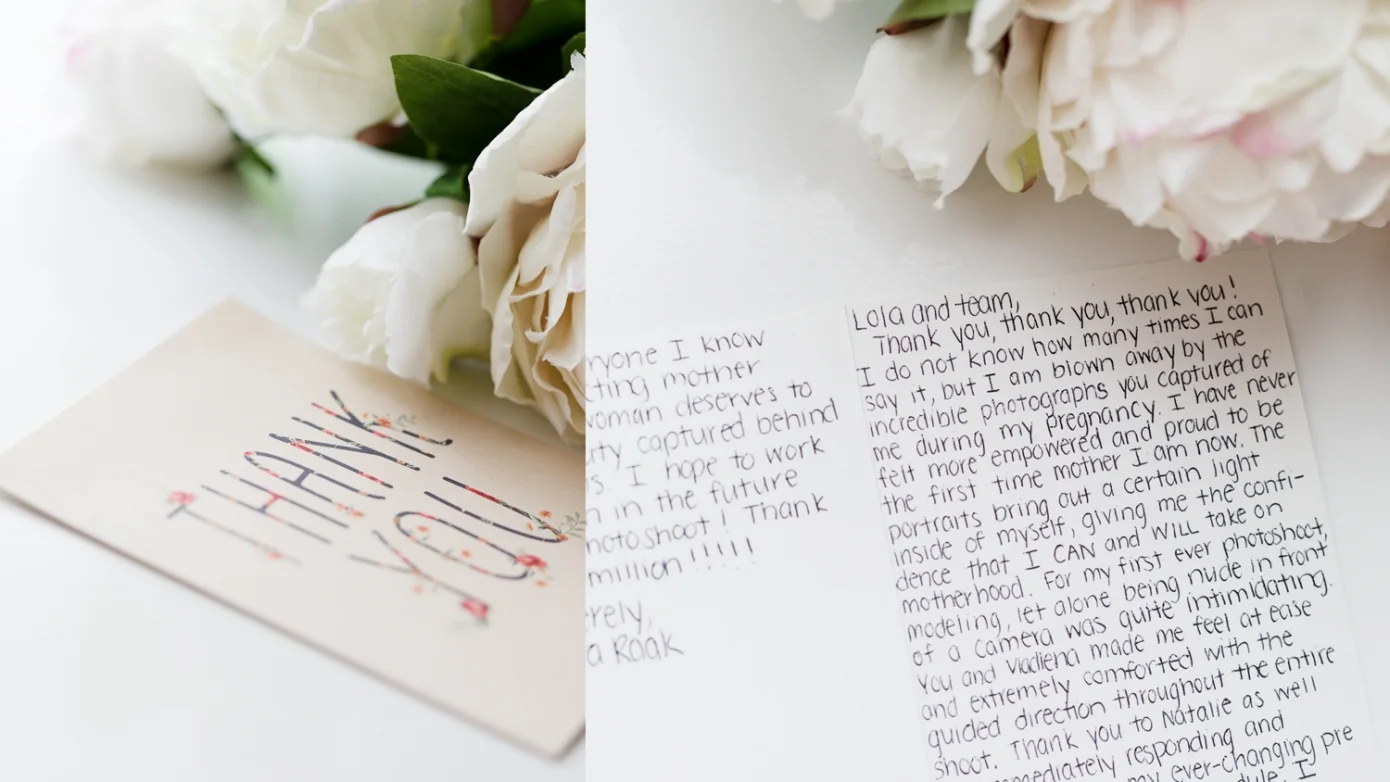 THANK
YOU
ryone I know
cting mother
woman deserves to
uty captured behind
s. I hope to work
n in the future
hotoshoot! Thank
million!!!!!
erely,
a Raak
Lola and team,
Thank you, thank you, thank you!
I do not know how many times I can
say it, but I am blown away by the
incredible photographs you captured of
me during my pregnancy. I have never
felt more empowered and proud to be
the first time mother I am now. The
portraits bring out a certain light
inside of myself, giving me the confi-
dence that I CAN and WILL take on
motherhood. For my first ever photoshoot,
modeling, let alone being nude in front
of a camera was quite intimidating.
You and Vladlena made me feel at ease
and extremely comforted with the
guided direction throughout the entire
shoot. Thank you to Natalie as well
mmediately responding and
my ever-changing pre
dule. I